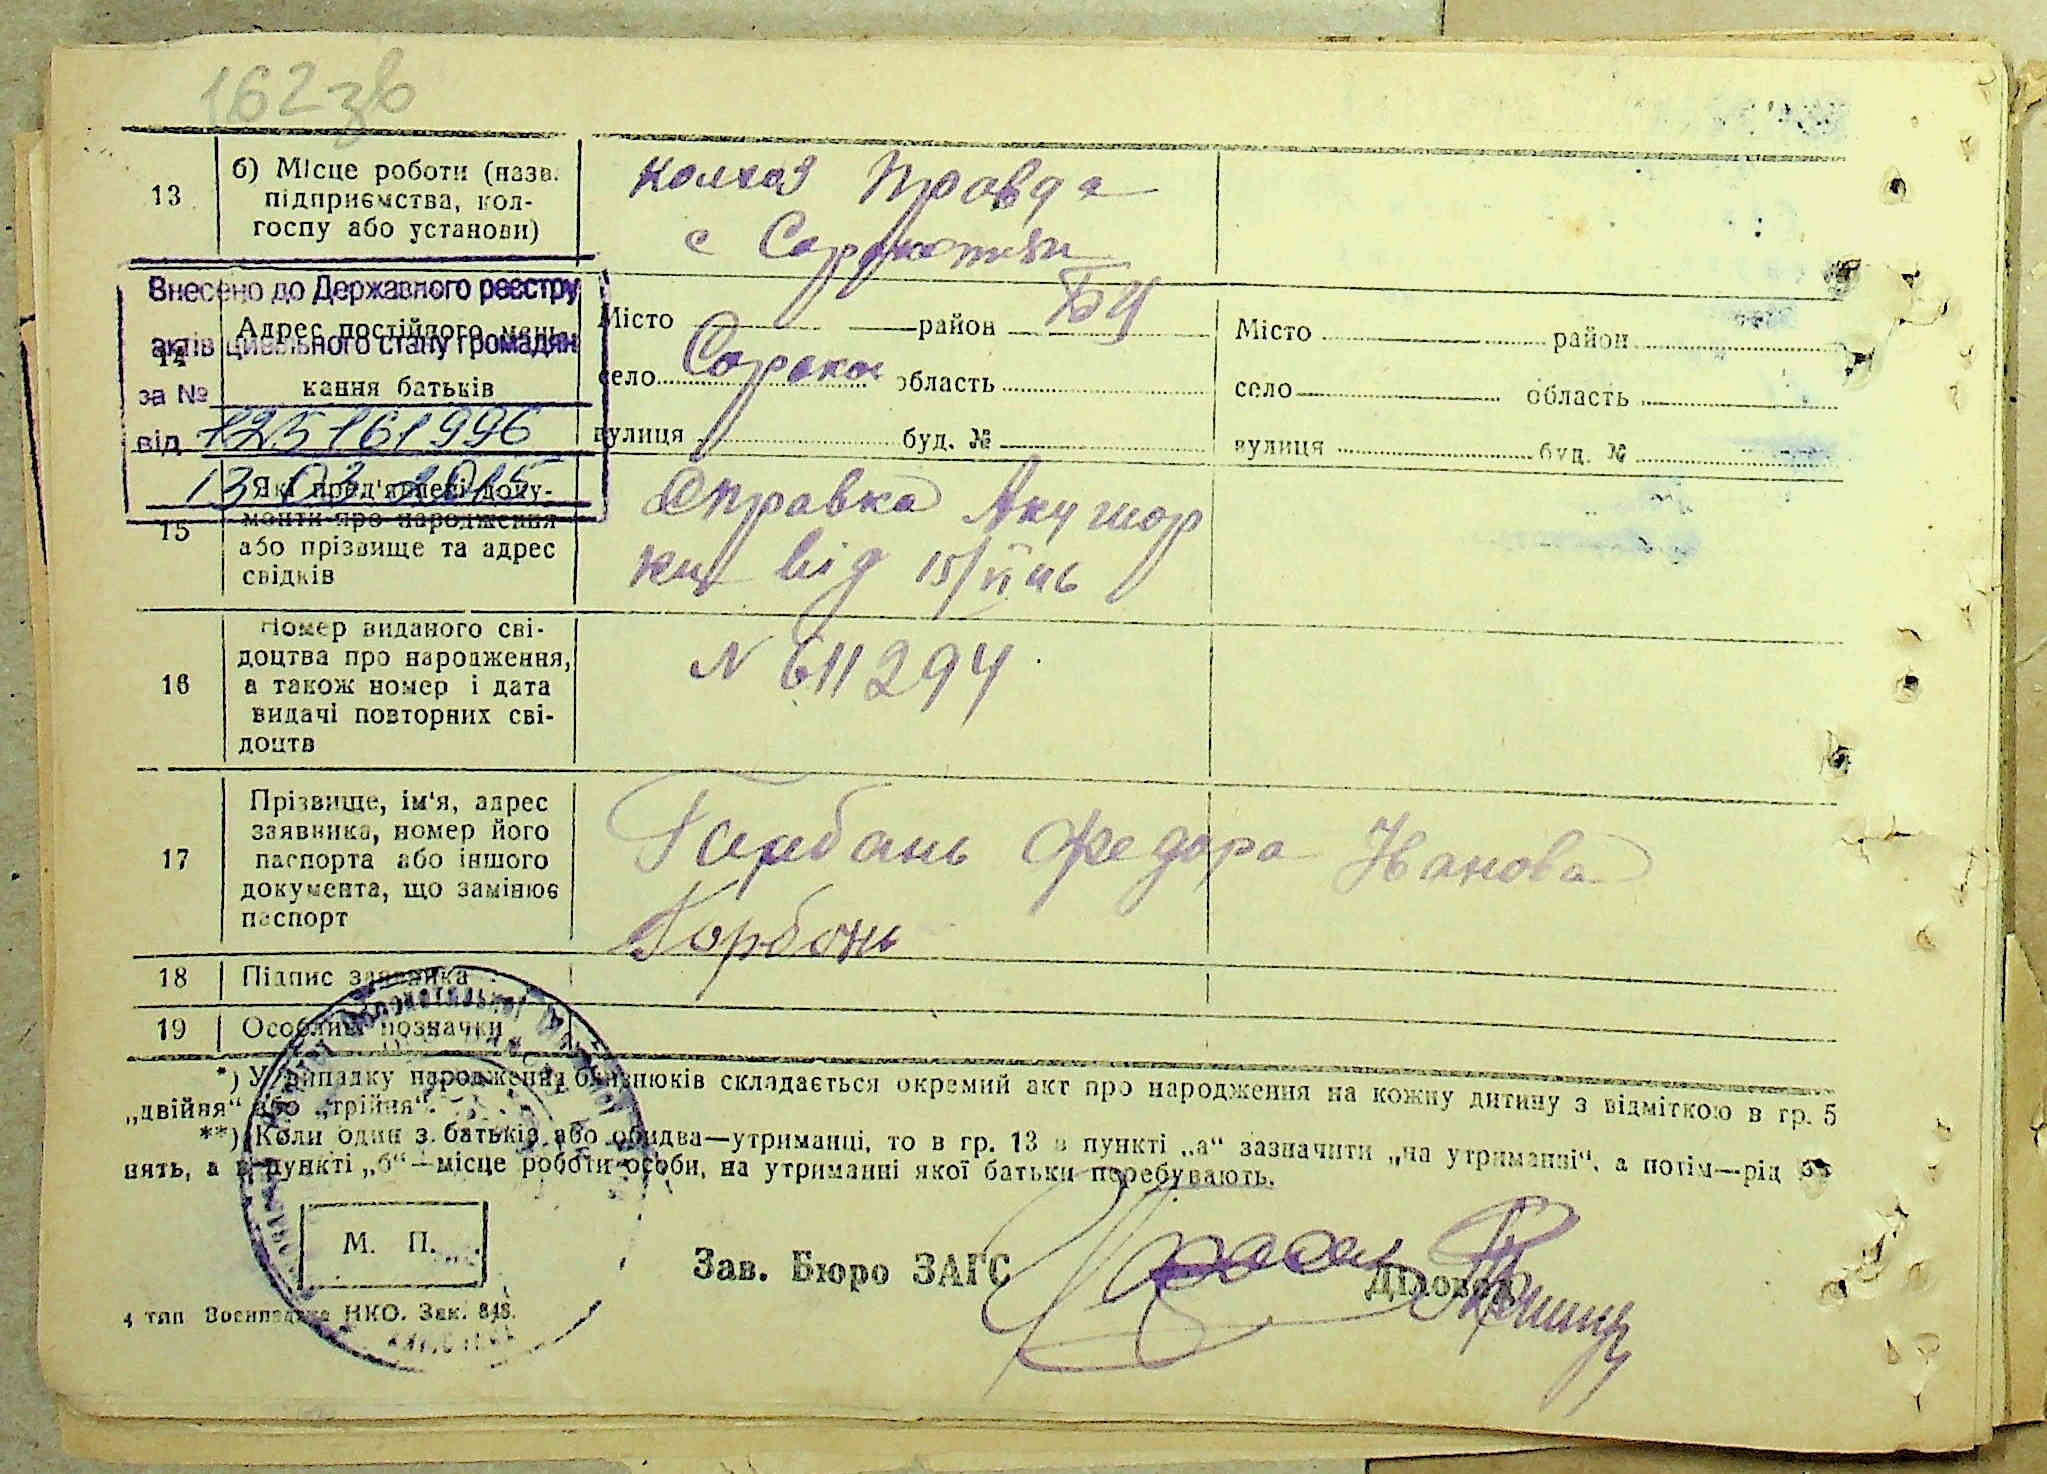 162зв
13
б) Місце роботи (назв.
підприємства, кол-
госпу або установи)
Колхаз Правда
с Сорокотяги
Внесено до Державного реєстру
актів цивільного стану громадян
за №
125161996
від
13 03 2015
14
Адрес постійного меш-
кання батьків
Місто район
село Сороко область
вулиця буд. №
Місто район
село область
вулиця буд. №
15
Які пред'явлені доку-
менти про народження
або прізвище та адрес
свідків
Справка Акушор
ки від 15/II
16
Номер виданого сві-
доцтва про народження,
а також номер і дата
видачі повторних сві-
доцтв
N 611294
17
Прізвище, ім'я, адрес
заявника, номер його
паспорта або іншого
документа, що замінює
паспорт
Гарбань Федора Иванова
Горбонь
18 Підпис заявника
19 Особливі позначки
*) У випадку народження близнюків складається окремий акт про народження на кожну дитину з відміткою в гр. 5
„двійня“ або „трійня“.
**) Коли один з батьків або обидва—утриманці, то в гр. 13 в пункті „а“ зазначити „на утриманні“, а потім—рід за
нять, а в пункті „б“—місце роботи особи, на утриманні якої батьки перебувають.
М. П.
Зав. Бюро ЗАГС Діловод
4 тип Воениздата НКО. Зак. 848.